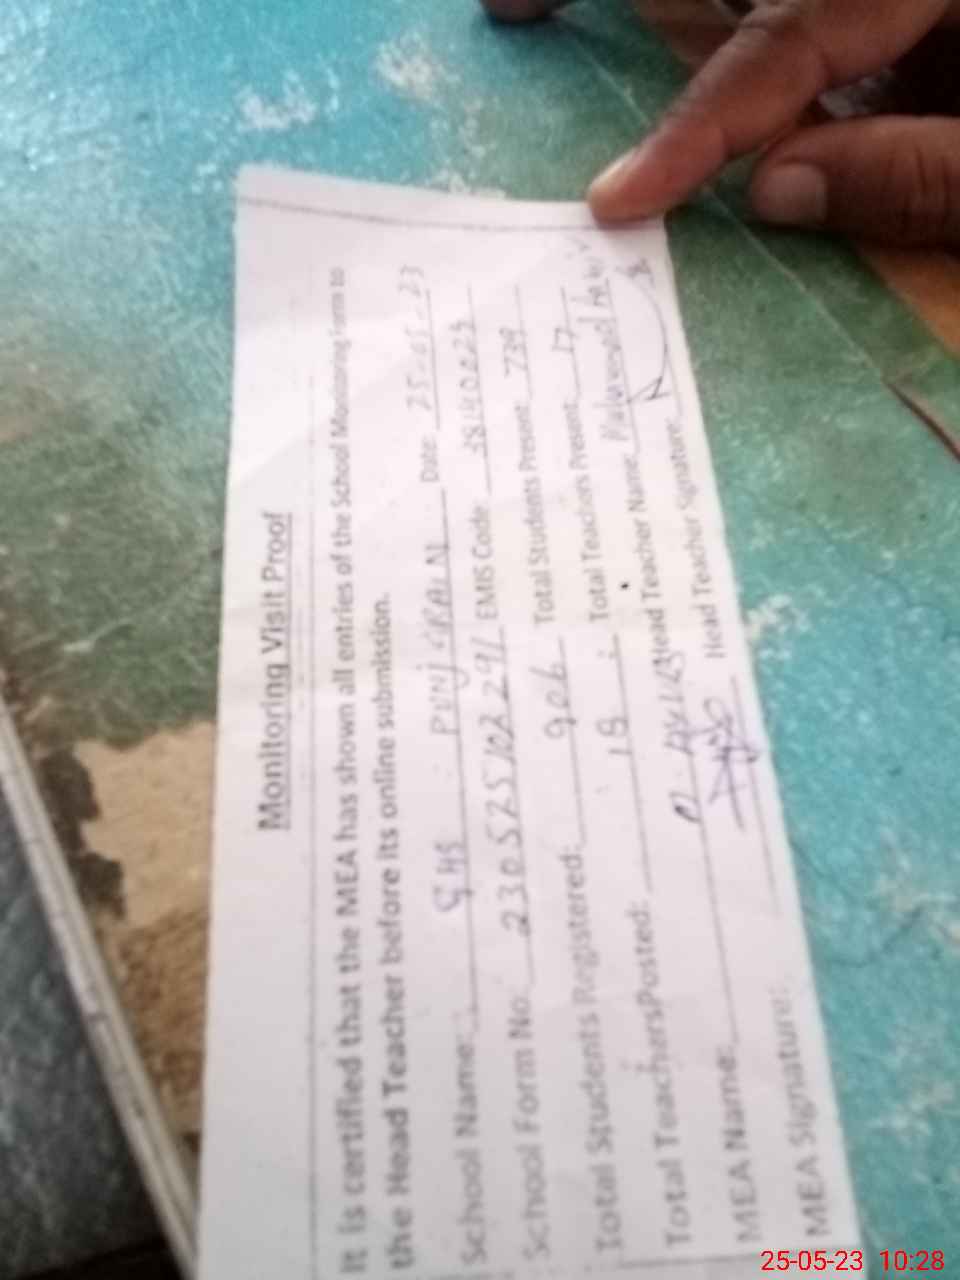 Monitoring Visit Proof
It is certified that the MEA has shown all entries of the School Monitoring Form to
the Head Teacher before its online submission.
School Name: GHS PUNJ GRAIN Date: 25-05-23
School Form No: 230525102291 EMIS Code: 38140023
Total Students Registered: 906 Total Students Present: 739
Total Teachers Posted: 18 Total Teachers Present: 17
MEA Name: Head Teacher Name:
MEA Signature: Head Teacher Signature:
25-05-23 10:28